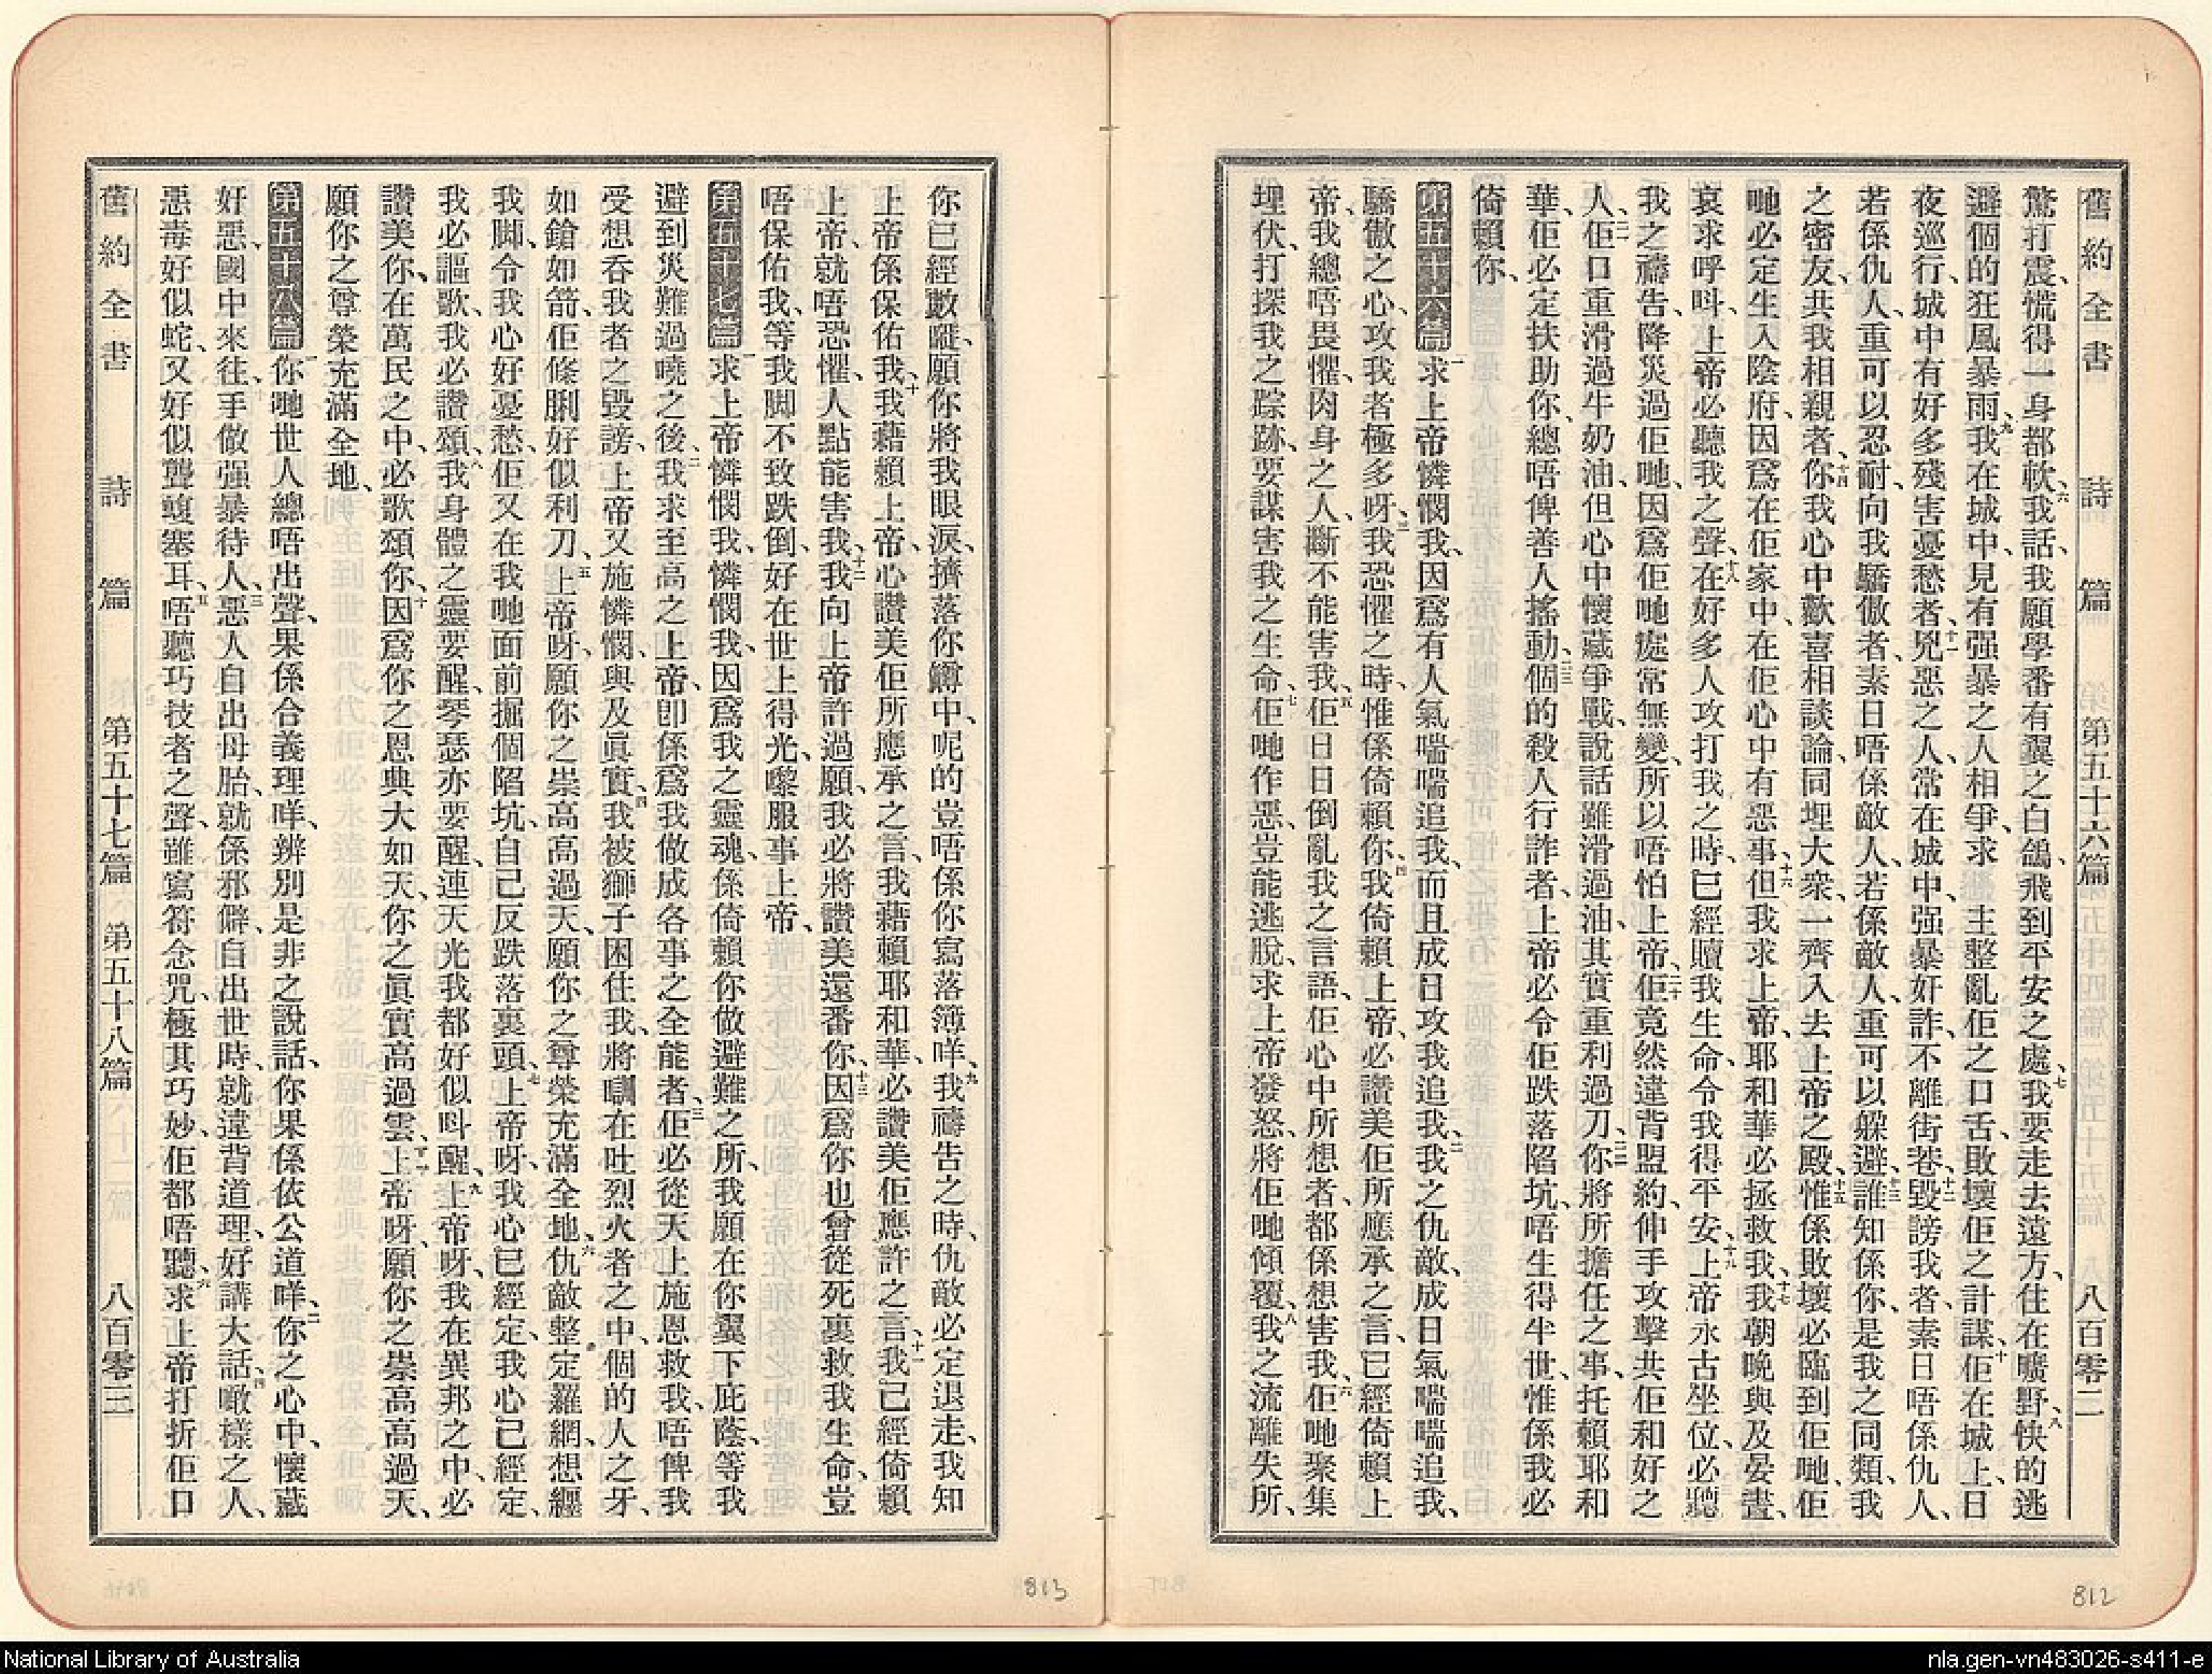 舊約全書　詩　篇　第五十六篇　八百零二
驚打震、慌得一身都軟、六我話、我願學番有翼之白鴿、飛到平安之處、七我要走去遠方、住在曠野、八快的逃
避個的狂風暴雨、九我在城中、見有强暴之人相爭、求　主整亂佢之口舌、敗壞佢之計謀、十佢在城上日
夜巡行、城中有好多殘害憂愁者、十一兇惡之人、常在城中、强暴奸詐、不離街巷、十二毀謗我者、素日唔係仇人、
若係仇人、重可以忍耐、向我驕傲者、素日唔係敵人、若係敵人、重可以躲避、十三誰知係你、是我之同類、我
之密友、共我相親者、十四你我心中歡喜相談論、同埋大衆、一齊入去上帝之殿、十五惟係敗壞必臨到佢哋、佢
哋必定生入陰府、因爲在佢家中、在佢心中有惡事、十六但我求上帝、耶和華必拯救我、十七我朝晚與及晏晝、
哀求呼呌、上帝必聽我之聲、十八在好多人攻打我之時、已經贖我生命、令我得平安、十九上帝永古坐位、必聽
我之禱告、降災過佢哋、因爲佢哋處常無變、所以唔怕上帝、二十佢竟然違背盟約、伸手攻擊共佢和好之
人、二一佢口重滑過牛奶油、但心中懷藏爭戰、說話雖滑過油、其實重利過刀、二二你將所擔任之事、托賴耶和
華、佢必定扶助你、總唔俾善人搖動、二三個的殺人行詐者、上帝必令佢跌落陷坑、唔生得半世、惟係我必
倚賴你、
第五十六篇　一求上帝憐憫我、因爲有人氣喘喘追我、而且成日攻我追我、二我之仇敵、成日氣喘喘追我、
驕傲之心、攻我者極多呀、三我恐懼之時、惟係倚賴你、四我倚賴上帝、必讚美佢所應承之言、已經倚賴上
帝、我總唔畏懼、肉身之人、斷不能害我、五佢日日倒亂我之言語、佢心中所想者、都係想害我、六佢哋聚集
埋伏、打探我之踪跡、要謀害我之生命、七佢哋作惡、豈能逃脫、求上帝發怒、將佢哋傾覆、八我之流離失所、
812
你已經數嚨、願你將我眼淚、擠落你鱒中、呢的豈唔係你寫落簿咩、九我禱告之時、仇敵必定退走、我知
上帝係保佑我、十我藉賴上帝、心讚美佢所應承之言、我藉賴耶和華、必讚美佢應許之言、十一我已經倚賴
上帝、就唔恐懼、人點能害我、十二我向上帝許過願、我必將讚美還番你、十三因爲你也曾從死裏救我生命、豈
唔保佑我、等我脚不致跌倒、好在世上得光、嚟服事上帝、
第五十七篇　一求上帝憐憫我、憐憫我、因爲我之靈魂、係倚賴你做避難之所、我願在你翼下庇蔭、等我
避到災難過嘵之後、二我求至高之上帝、卽係爲我做成各事之全能者、三佢必從天上施恩救我、唔俾我
受想吞我者之毀謗、上帝又施憐憫、與及眞實、四我被獅子困住、我將瞓在吐烈火者之中、個的人之牙、
如鎗如箭、佢條脷好似利刀、五上帝呀、願你之崇高高過天、願你之尊榮充滿全地、六仇敵整定羅網、想纏
我脚、令我心好憂愁、佢又在我哋面前掘個陷坑、自己反跌落裏頭、七上帝呀、我心已經定、我心已經定、
我必謳歌、我必讚頌、八我身體之靈要醒、琴瑟亦要醒、連天光我都好似呌醒、九上帝呀、我在異邦之中、必
讚美你、在萬民之中、必歌頌你、十因爲你之恩典大如天、你之眞實高過雲、十一上帝呀、願你之崇高高過天、
願你之尊榮充滿全地、
第五十八篇　一你哋世人總唔出聲、果係合義理咩、辨別是非之說話、你果係依公道咩、二你之心中、懷藏
好惡、國中來往、手做强暴待人、三惡人自出母胎、就係邪僻、自出世時、就違背道理、好講大話、四噉樣之人、
惡毒好似蛇、又好似聾蝮塞耳、五唔聽巧技者之聲、雖寫符念咒、極其巧妙、佢都唔聽、六求上帝打折佢口
舊約全書　詩　篇　第五十七篇　第五十八篇　八百零三
813
National Library of Australia
nla.gen-vn483026-s411-e